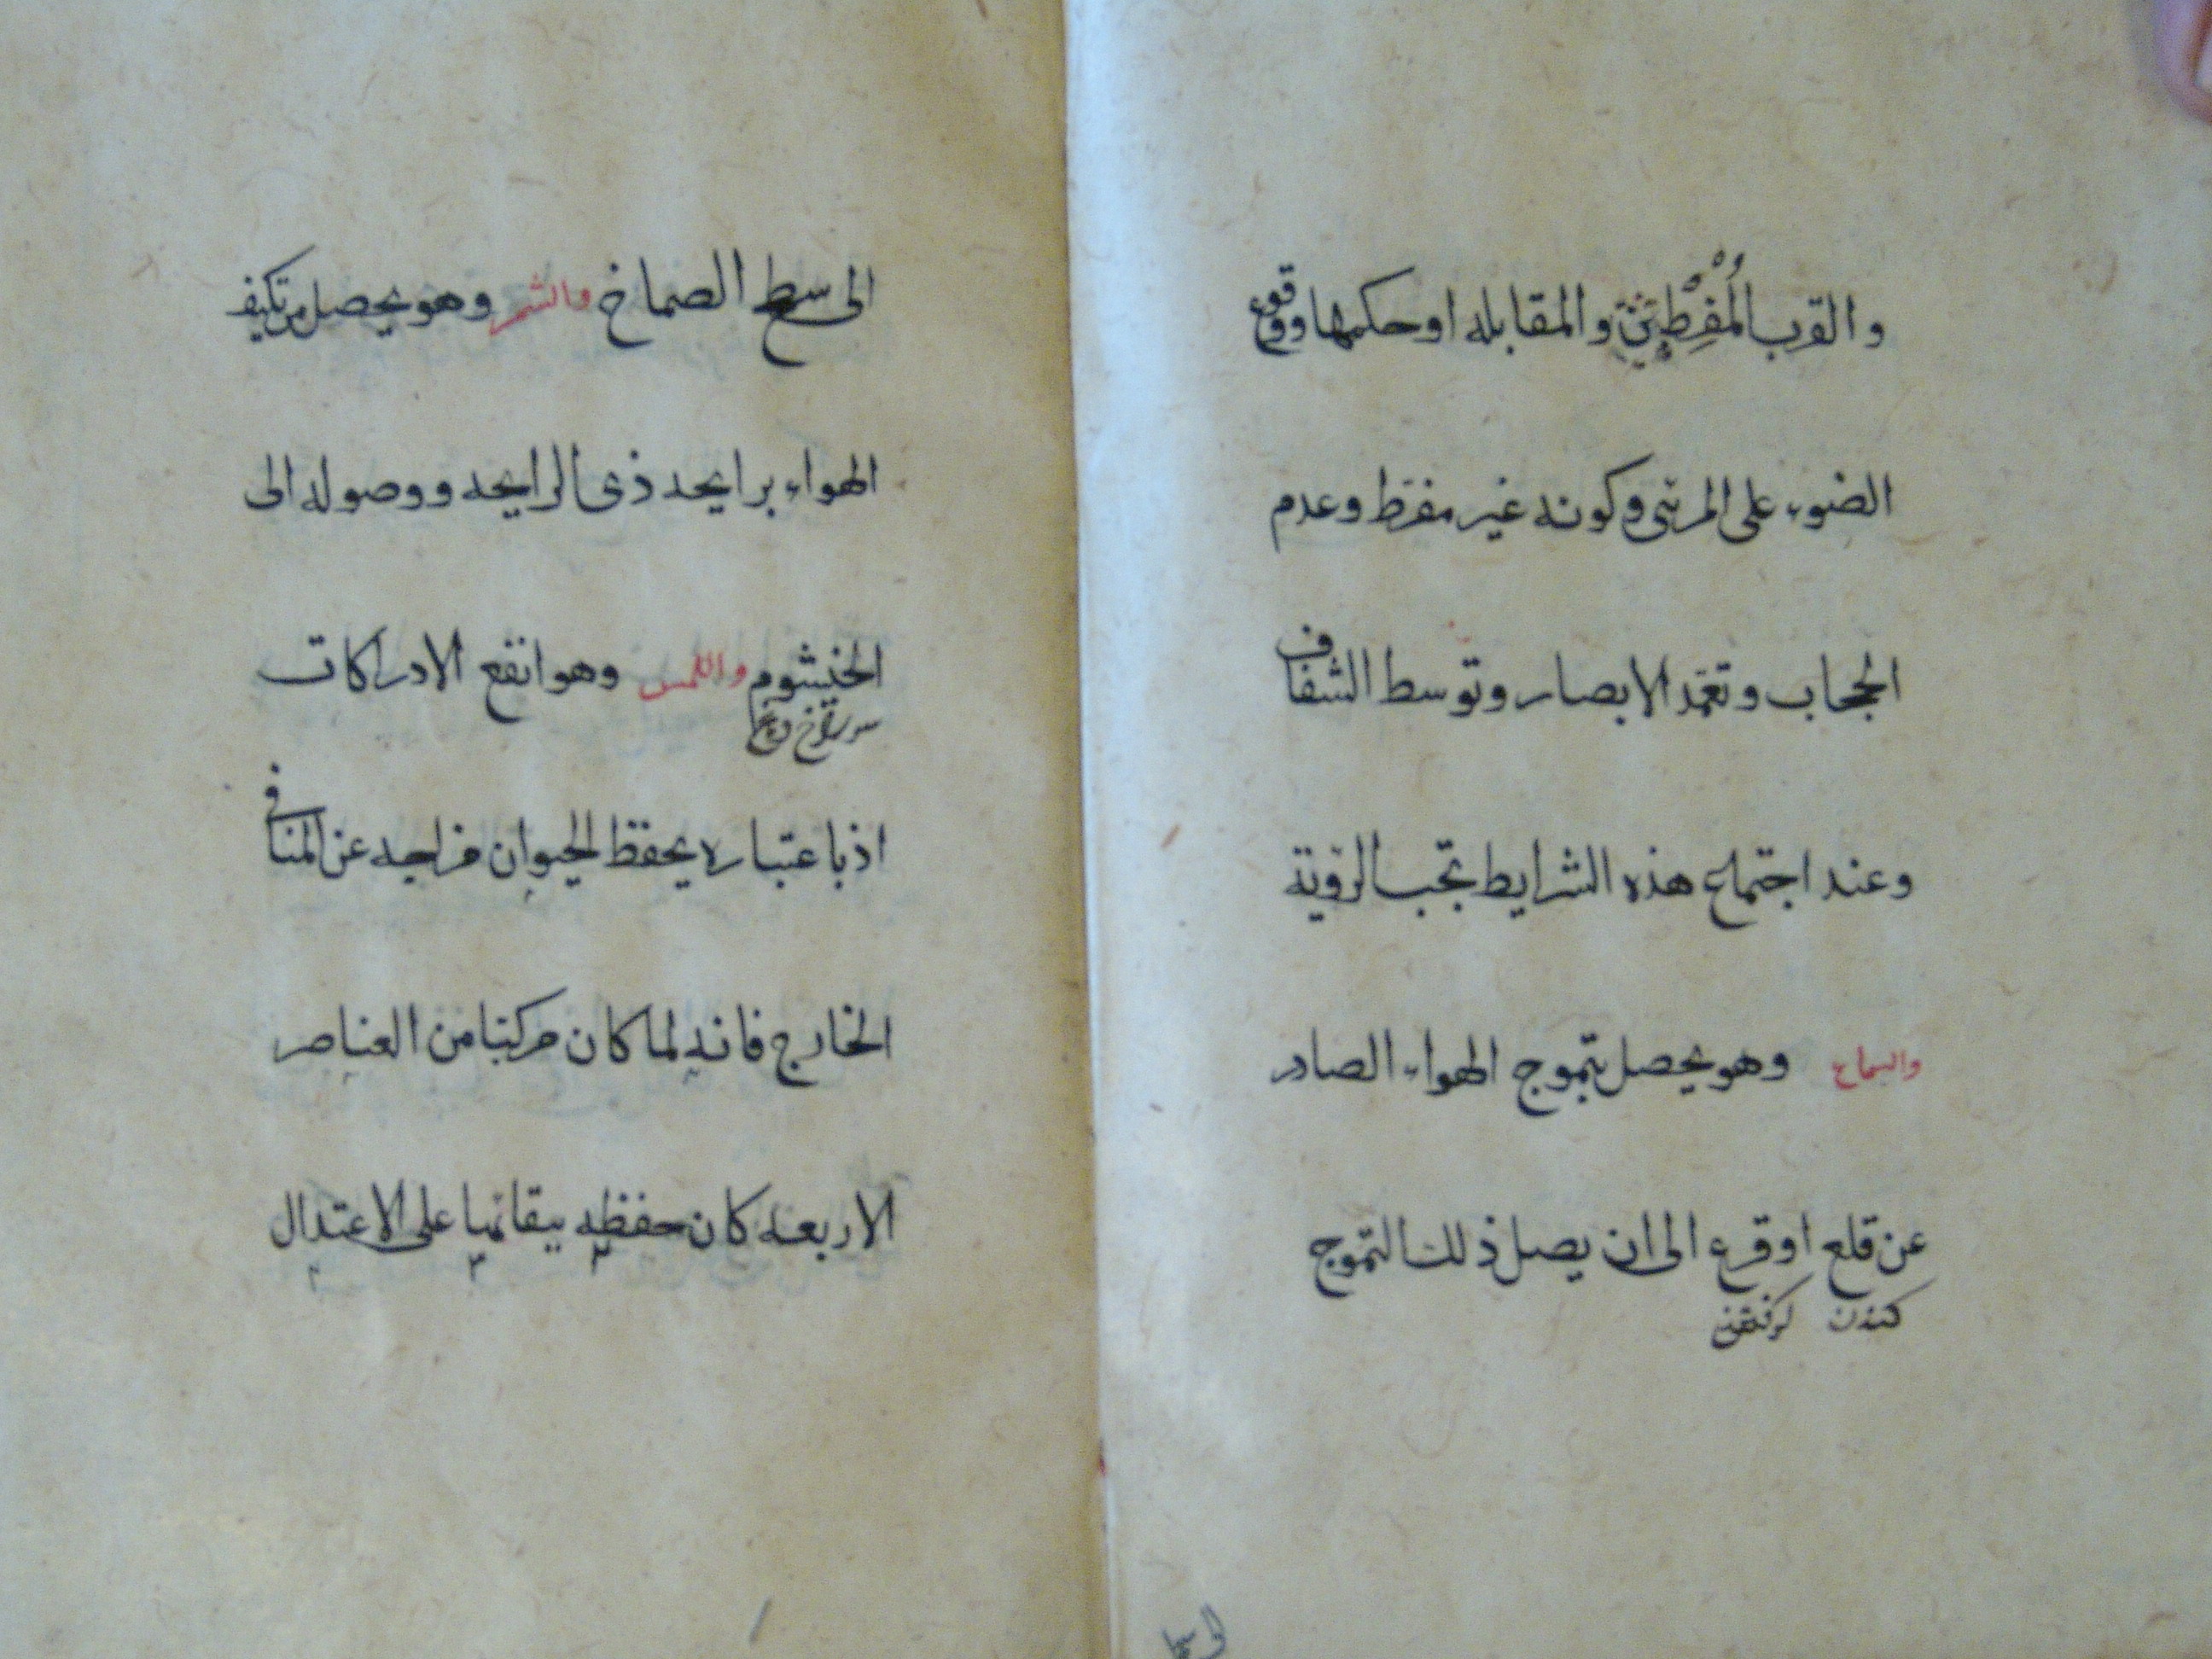 والقرب المُفْرِطَيْن والمقابله او حكمها ووقوع
الضوء على المرئى وكونه غير مفرط وعدم
الحجاب وتعمد الابصار وتوسط الشفاف
وعند اجتماع هذه الشرايط تجب الرؤية
والسماع وهو يحصل بتموج الهواء الصادر
عن قلع او قرع الى ان يصل ذلك التموج
كندن
الى سطح
الى سطح الصماخ والشم وهو يحصل من تكيف
الهواء برايحه ذى الرايحه ووصوله الى
الخيشوم واللمس وهو انفع الادراكات
اذ باعتباره يحفظ الحيوان مزاجه عن المنافى
الخارج فانه لما كان مركبا من العناصر
الاربعه كان حفظه ببقائها على الاعتدال